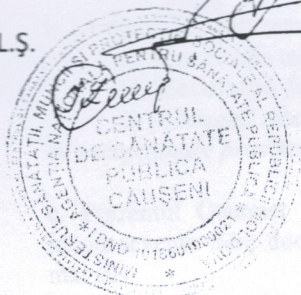 L.Ș.
MINISTERUL SĂNĂTĂȚII, MUNCII ȘI PROTECȚIEI SOCIALE AL REPUBLICII MOLDOVA
AGENȚIA NAȚIONALĂ PENTRU SĂNĂTATE PUBLICĂ
CENTRUL
DE SĂNĂTATE
PUBLICĂ
CĂUȘENI